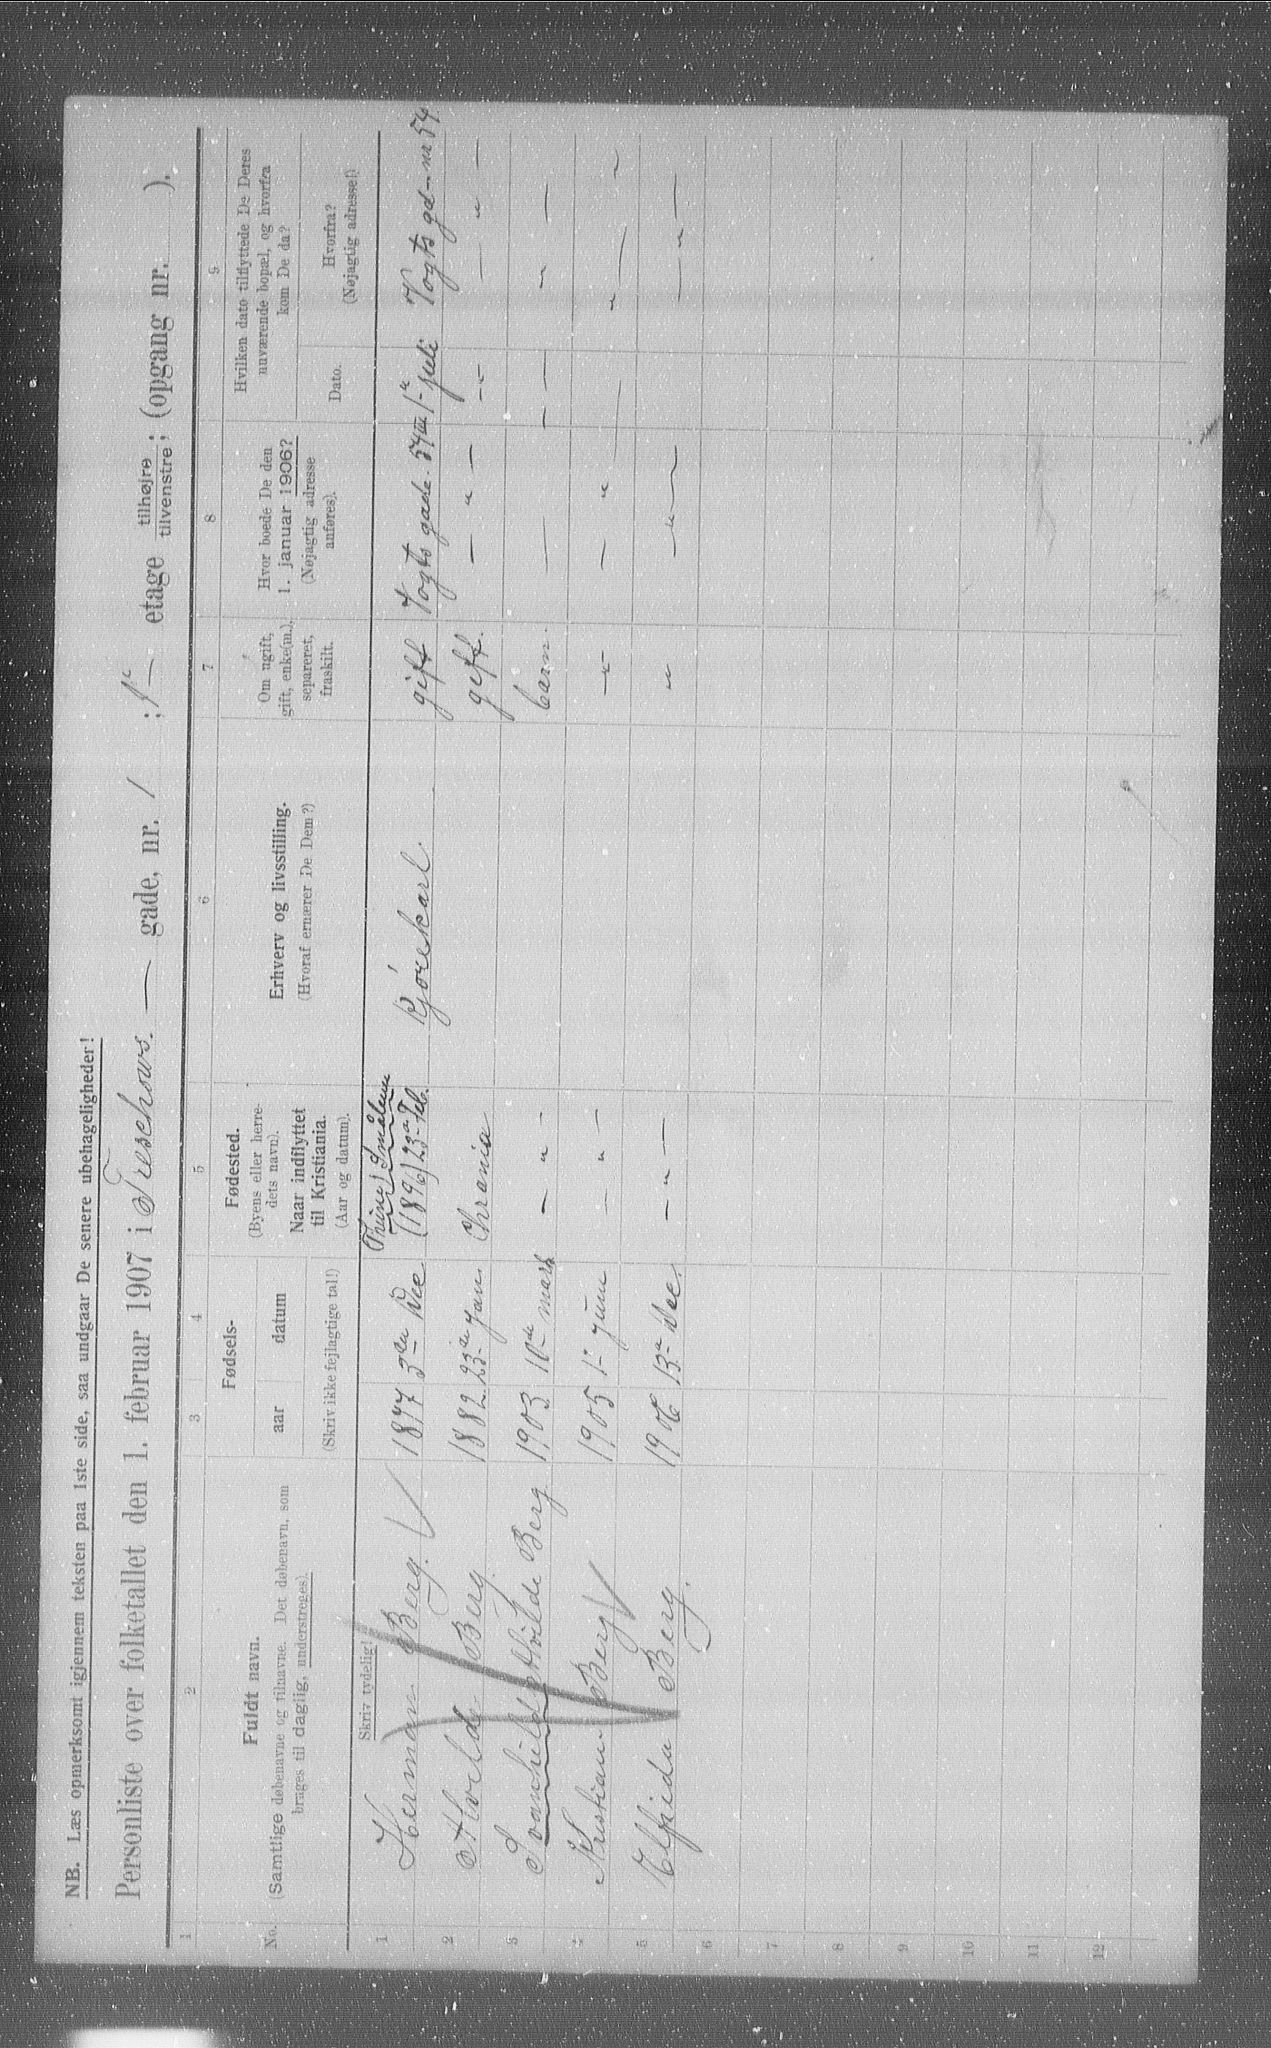 NB. Læs opmerksomt igjennem teksten paa 1ste side, saa undgaar De senere ubehageligheder!
Personliste over folketallet den 1. februar 1907 i Treschows. — gade, nr. 1 ; 1ᵉ — etage tilhøjre tilvenstre; (opgang nr. ).
1 2 3 4 5 6 7 8 9
No.
Fuldt navn.
(Samtlige døbenavne og tilnavne. Det døbenavn, som
bruges til daglig, understreges).
Fødsels-
aar datum
(Skriv ikke fejlagtige tal!)
Fødested.
(Byens eller herre-
dets navn).
Naar indflyttet
til Kristiania.
(Aar og datum).
Erhverv og livsstilling.
(Hvoraf ernærer De Dem?)
Om ugift,
gift, enke(m.),
separeret,
fraskilt.
Hvor boede De den
1. januar 1906?
(Nøjagtig adresse
anføres).
Hvilken dato tilflyttede De Deres
nuværende bopæl, og hvorfra
kom De da?
Dato.
Hvorfra?
(Nøjagtig adresse!)
Skriv tydelig!
1 Herman Berg. 1877 3de Dec Smålenene (1896) 23de Feb. Kjørekarl. gift Vogts gade. 54 III 1ᵉ juli Vogts gd — nr 54
2 Alvilde Berg. 1882 23de Jan. Chrania gift. — " — — " — — " —
3 Svanhild Alvilde Berg 1903 10de mars — " — barn. — — — — " —
4 Kristian Berg 1905 1ᵉ Juni — " — — " — — " — — " — "
5 Elfrida Berg. 1906 13ᵉ Dec. — " — " — " — — " —
6
7
8
9
10
11
12